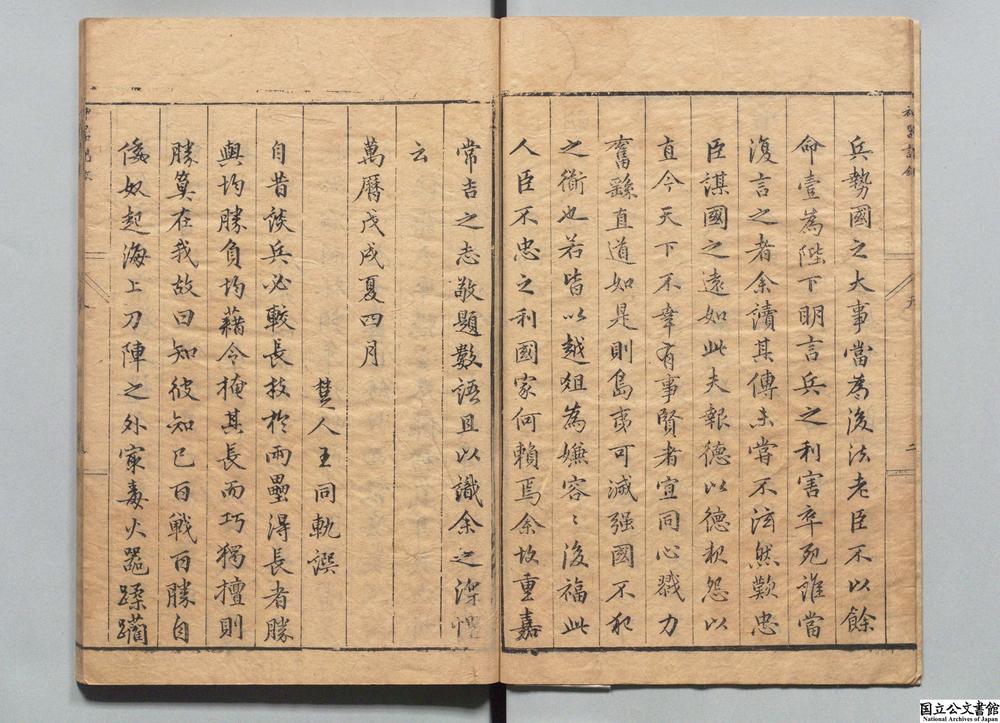 兵勢國之大事當為後法老臣不以餘
命壹為陛下明言兵之利害卒死誰當
復言之者余讀其傳未嘗不泫然歎忠
臣謀國之遠如此夫報德以德報怨以
直今天下不幸有事賢者宜同心戮力
奮繇直道如是則島夷可滅强國不犯
之術也若皆以越俎為嫌容〻後福此
人臣不忠之利國家何賴焉余故重嘉
常吉之志敬題數語且以識余之深
云
萬曆戊戌夏四月
楚人王同軌譔
自昔談兵必較長技於兩壘淂長者勝
與均勝負均藉令掩其長而巧獨擅則
勝筭在我故曰知彼知己百戰百勝自
倭奴起海上刀陣之外寂毒火器蹂躪
国立公文書館
National Archives of Japan